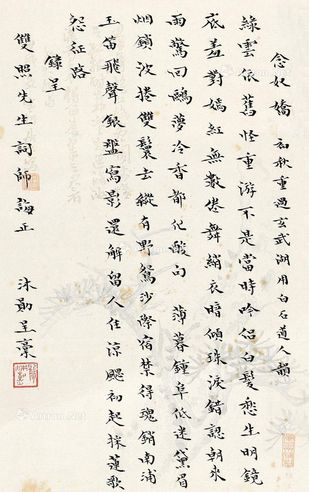 念奴嬌 初秋重過玄武湖用白石道人韻
綠雲依舊恠重游不是當時吟侶白髮愁生明鏡
底羞對嫣紅無數卷舞綃衣暗傾珠淚錯認朝來
雨驚回鷗夢冷香都化酸句 薄暮鍾阜低迷黛眉
烟鎖波捲雙鬟去縱有野鴛沙際宿禁得魂銷南浦
玉笛飛聲銀盤寫影還解留人住涼颸初起採蓮歌
怨征路
錄呈
雙照先生詞師誨正
沐勛呈稾